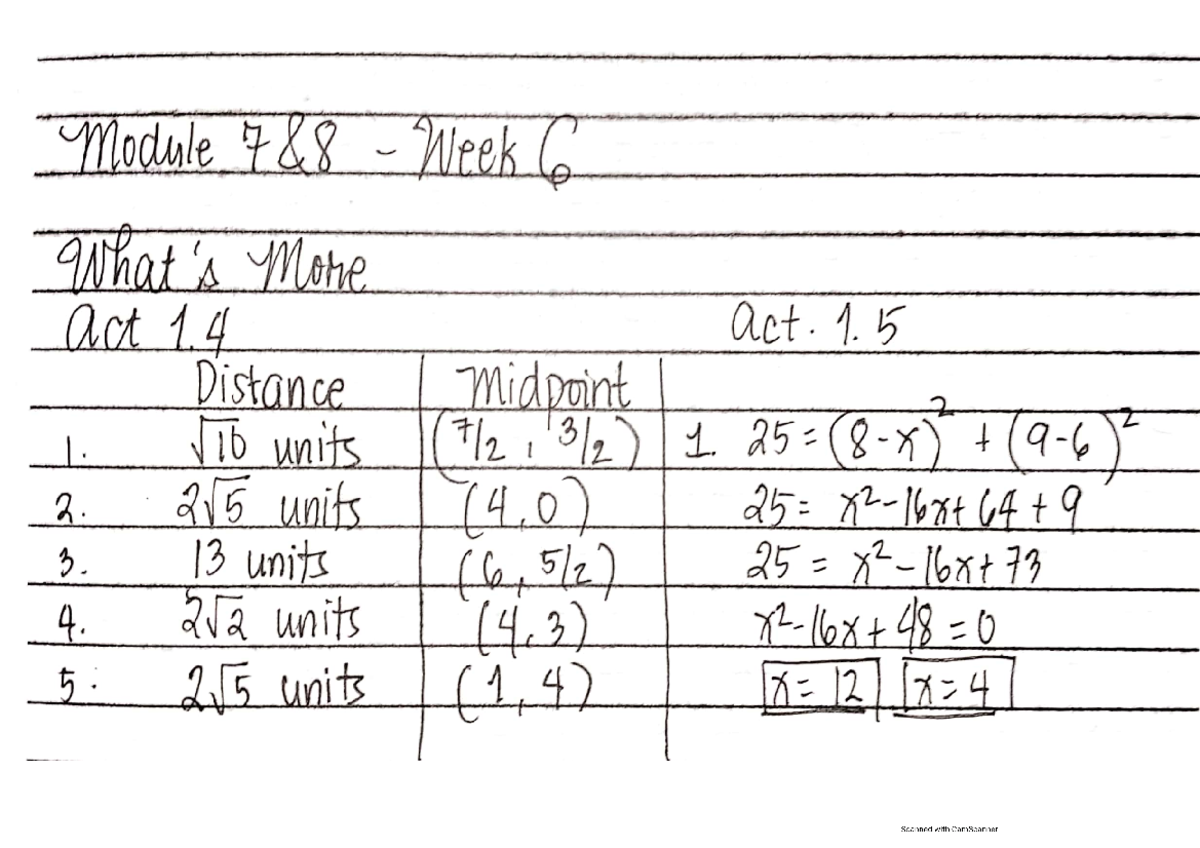 Module 7 & 8 - Week 6
What's More
Act 1.4 Act. 1.5
Distance Midpoint
1. √10 units (7/2, 3/2) 1. 25 = (8-x)² + (9-6)²
2. 2√5 units (4,0) 25 = x²-16x+64+9
3. 13 units (6, 5/2) 25 = x²-16x+73
4. 2√2 units (4,3) x²-16x+48=0
5. 2√5 units (1,4) x=12 x=4
Scanned with CamScanner